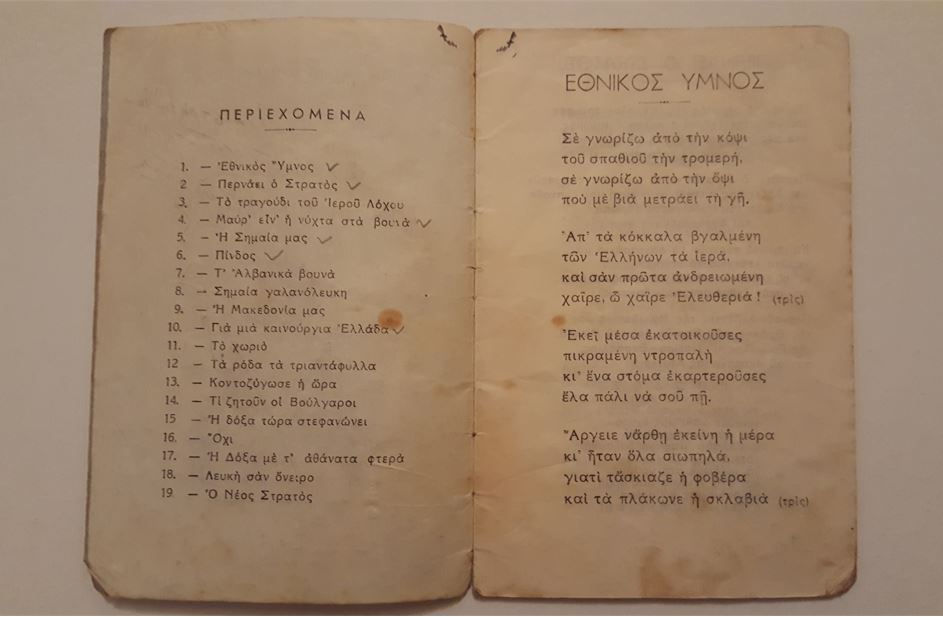 ΠΕΡΙΕΧΟΜΕΝΑ
1. — Ἐθνικὸς Ὕμνος
2 — Περνάκι ὁ Στρατὸς
3. — Τὸ τραγούδι τοῦ Ἱεροῦ Λόχου
4. — Μαύρ' εἶν' ἡ νύχτα στὰ βουνὰ
5. — Ἡ Σημαία μας
6. — Πίνδος
7. — Τ' Ἀλβανικὰ βουνὰ
8. — Σημαία γαλανόλευκη
9. — Ἡ Μακεδονία μας
10. — Γιὰ μιὰ καινούργια Ἑλλάδα
11. — Τὸ χωριὸ
12 — Τὰ ρόδα τὰ τριαντάφυλλα
13. — Κοντοζύγωσε ἡ ὥρα
14. — Τὶ ζητοῦν οἱ Βούλγαροι
15 — Ἡ δόξα τώρα στεφανώνει
16. — Ὄχι
17. — Ἡ Δόξα μὲ τ' ἀθάνατα φτερὰ
18. — Λευκὴ σὰν ὄνειρο
19 — Ὁ Νέος Στρατὸς
ΕΘΝΙΚΟΣ ΥΜΝΟΣ
Σὲ γνωρίζω ἀπὸ τὴν κόψι
τοῦ σπαθιοῦ τὴν τρομερή,
σὲ γνωρίζω ἀπὸ τὴν ὄψι
ποὺ μὲ βιὰ μετράει τὴ γῆ.
Ἀπ' τὰ κόκκαλα βγαλμένη
τῶν Ἑλλήνων τὰ ἱερά,
καὶ σὰν πρῶτα ἀνδρειωμένη
χαῖρε, ὦ χαῖρε Ἐλευθεριά! (τρὶς)
Ἐκεῖ μέσα ἐκατοικοῦσες
πικραμένη ντροπαλὴ
κι' ἕνα στόμα ἐκαρτεροῦσες
ἔλα πάλι νὰ σοῦ πῇ.
Ἄργειε νἄρθῃ ἐκείνη ἡ μέρα
κι' ἦταν ὅλα σιωπηλά,
γιατὶ τἄσκιαζε ἡ φοβέρα
καὶ τὰ πλάκωνε ἡ σκλαβιὰ (τρὶς)